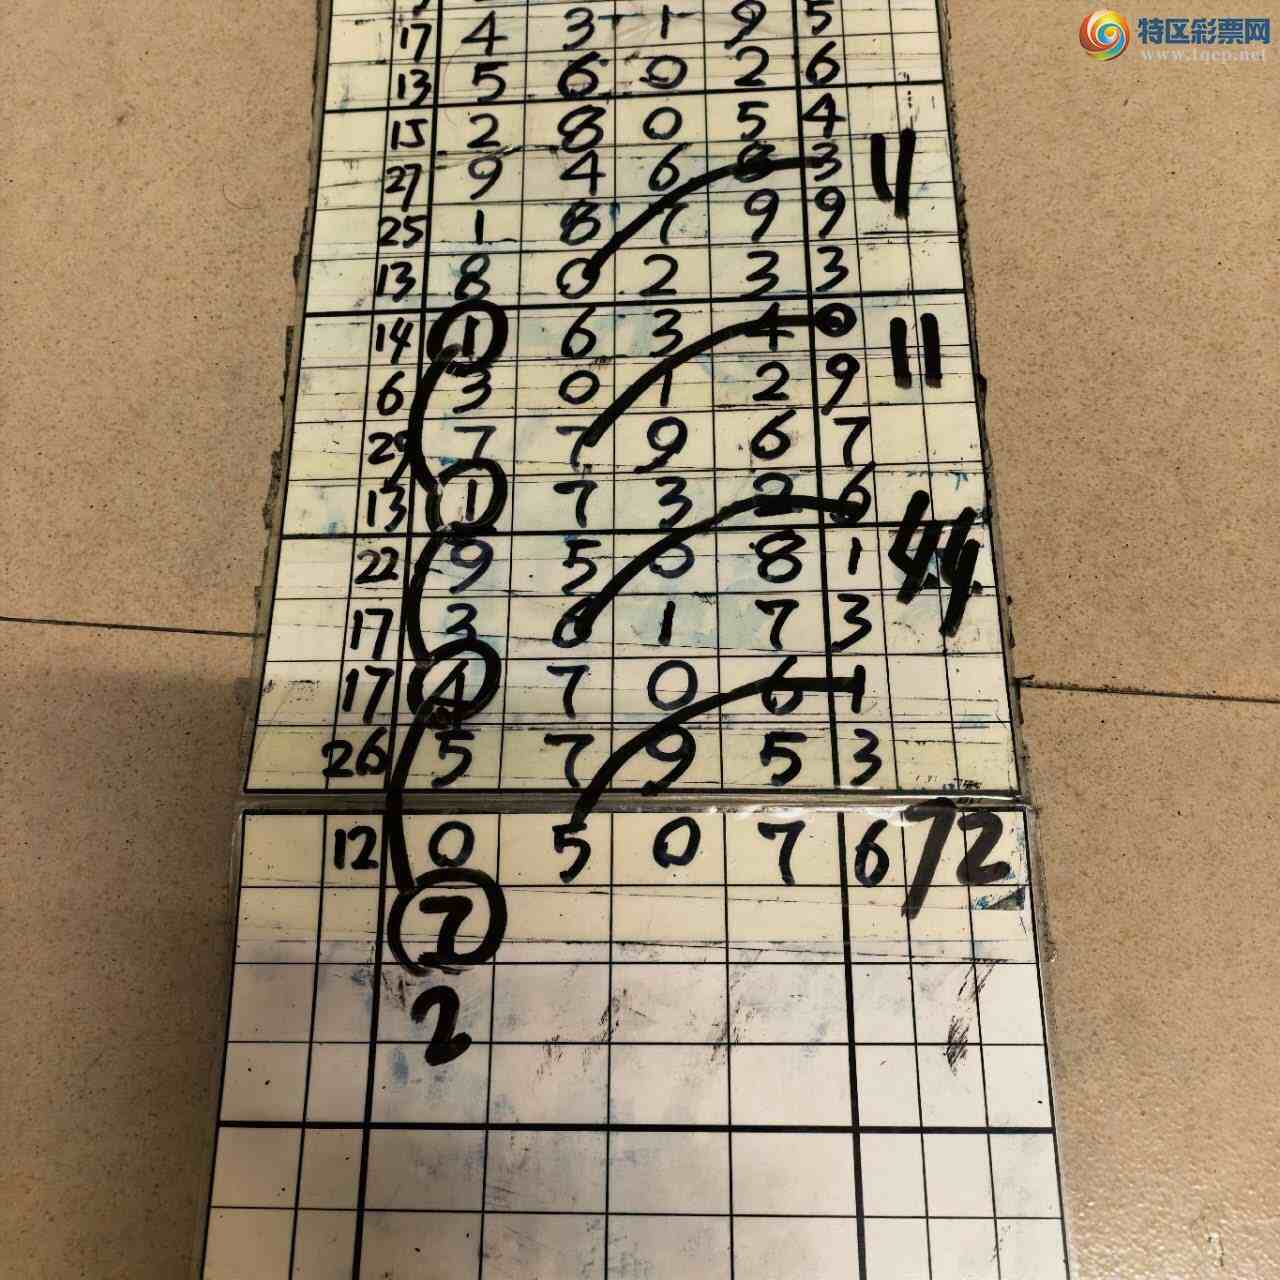 特区彩票网
www.tqcp.net
17 4 3 1 9 5
13 5 6 0 2 6
15 2 8 0 5 4
27 9 4 6 8 3 4
25 1 8 7 9 9
13 8 0 2 3 3
14 1 6 3 4 0 11
6 3 0 1 2 9
29 7 7 9 6 7
13 1 7 3 2 6
22 9 5 0 8 1 44
17 3 6 1 7 3
17 4 7 0 6 1
26 5 7 9 5 3
12 0 5 0 7 6 72
7
2